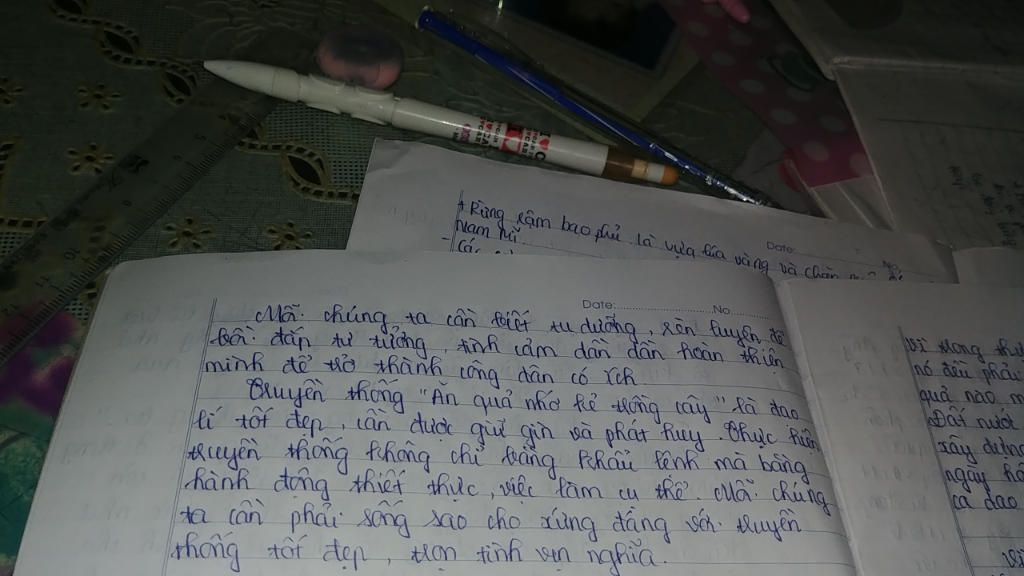 + Rừng rậm bao phủ là vựa lúa vàng và chăn
Nam Mĩ.
Date: No
Date: No
Mỗi chúng ta cần biết tu dưỡng, rèn luyện để
bồi đắp tư tưởng, tình cảm dần dần hoàn thiện
mình để trở thành công dân có ích.
Truyền thống "Ăn quả nhớ kẻ trồng cây" là đạo
lí tốt đẹp, cần được giữ gìn và phát huy. Thực hiện
truyền thống không chỉ bằng khẩu lệnh mà bằng
hành động thiết thực, việc làm cụ thể. Mỗi chúng
ta cần phải sống sao cho xứng đáng với truyền
thống tốt đẹp, trọn tình vẹn nghĩa.
vì trong
nó đều phải
quả nào
Đất nước
xây dựng
ngày
ca dao